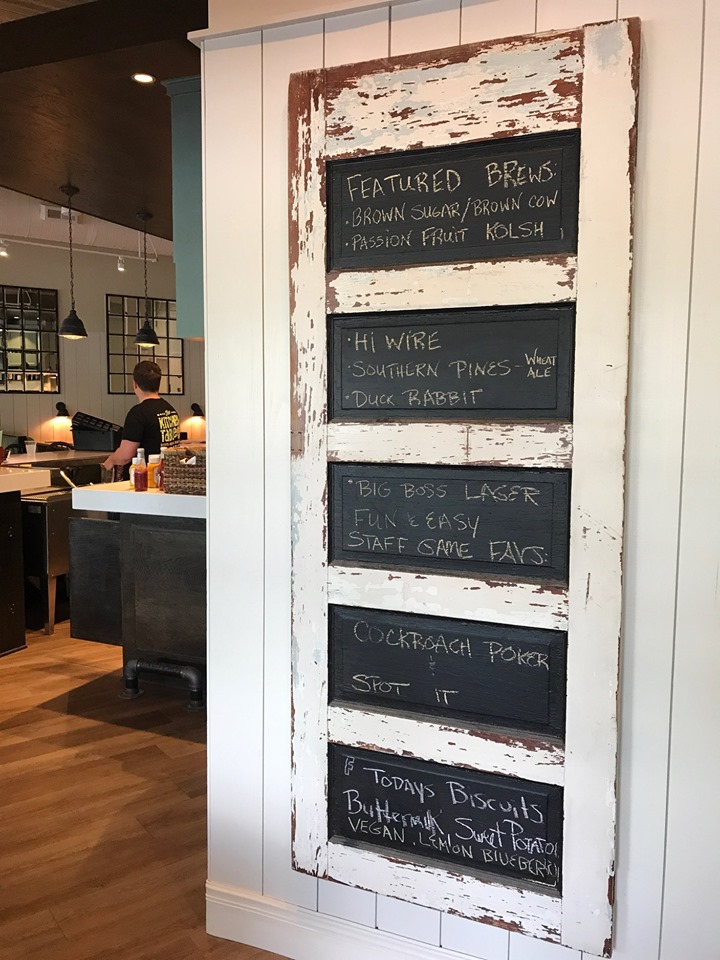 FEATURED BREWS:
• BROWN SUGAR/BROWN COW
• PASSION FRUIT KOLSH
• HI WIRE
• SOUTHERN PINES - WHEAT ALE
• DUCK RABBIT
• BIG BOSS LASER
FUN & EASY
STAFF GAME FAVS:
COCKROACH POKER
&
SPOT IT
F TODAYS BISCUITS
Buttermilk, Sweet POTATO,
VEGAN, LEMON BLUEBERRY
KITCHEN
TABLE